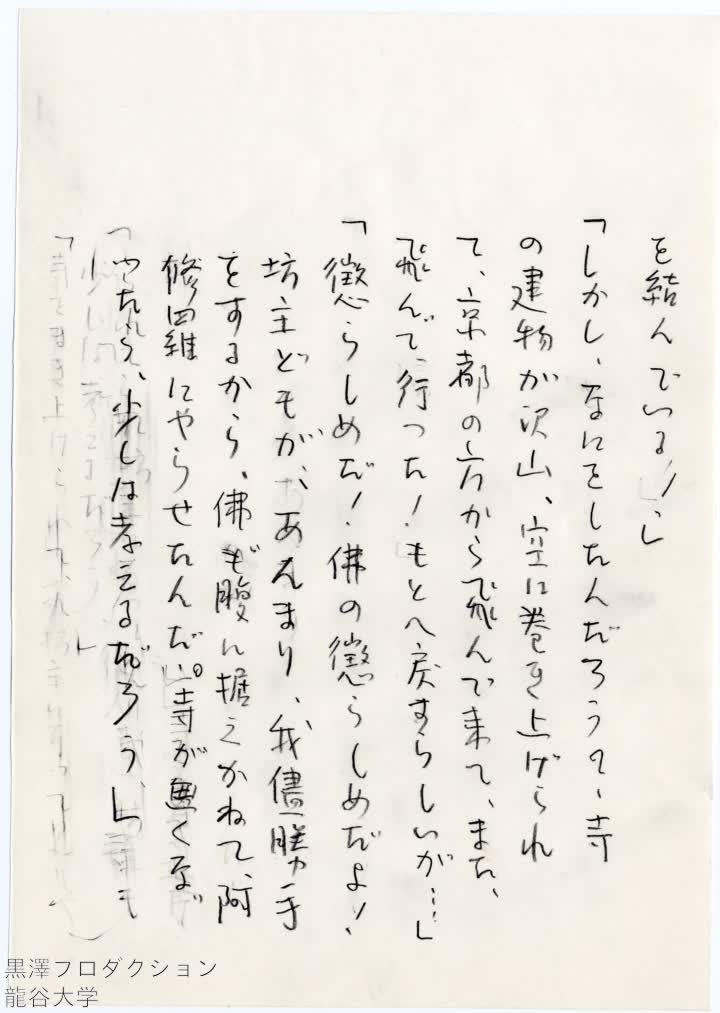 を結んでいる!」
「しかし、なにをしたんだろうて、寺
の建物が沢山、空に巻き上げられ
て、京都の方から飛んで来て、また、
飛んで行った!もとへ戻すらしいが…」
「懲らしめだ!佛の懲らしめだよ!、
坊主どもが、あんまり、我儘勝手
をするから、佛も腹に据えかねて、阿
修羅にやらせたんだ。寺が無くな
れば、少しは考えるだろう、」
黒澤プロダクション
龍谷大学